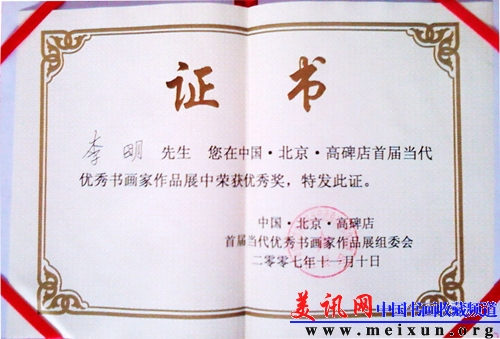 证书
李明 先生 您在中国·北京·高碑店首届当代
优秀书画家作品展中荣获优秀奖，特发此证。
中国·北京·高碑店
首届当代优秀书画家作品展组委会
二零零七年十一月十日
美讯网 中国书画收藏频道
www.meixun.org